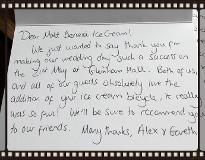 Dear Most Serene Ice Cream!
We just wanted to say thank you for
making our wedding day such a success on
the 21st May at Thornham Hall. Both of us,
and all of our guests absolutely love the
addition of your ice cream bicycle, it really
was so fun! We'll be sure to recommend you
to our friends.
Many thanks, Alex & Gareth